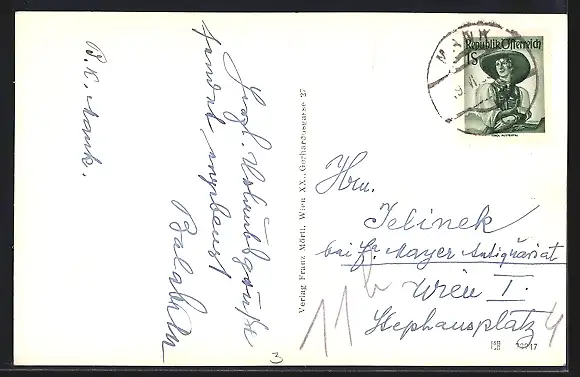 B. K. Mank.
Hochl. Urlaubsgrüße
sendet ergebenst
Balak
Verlag Franz Mörtl, Wien XX., Gerhardusgasse 27
MANK
Republik Österreich
1S
Hrn.
Jelinek
bei Fr. Mayer Antiquariat
Wien I.
Stephansplatz 4
11b
3